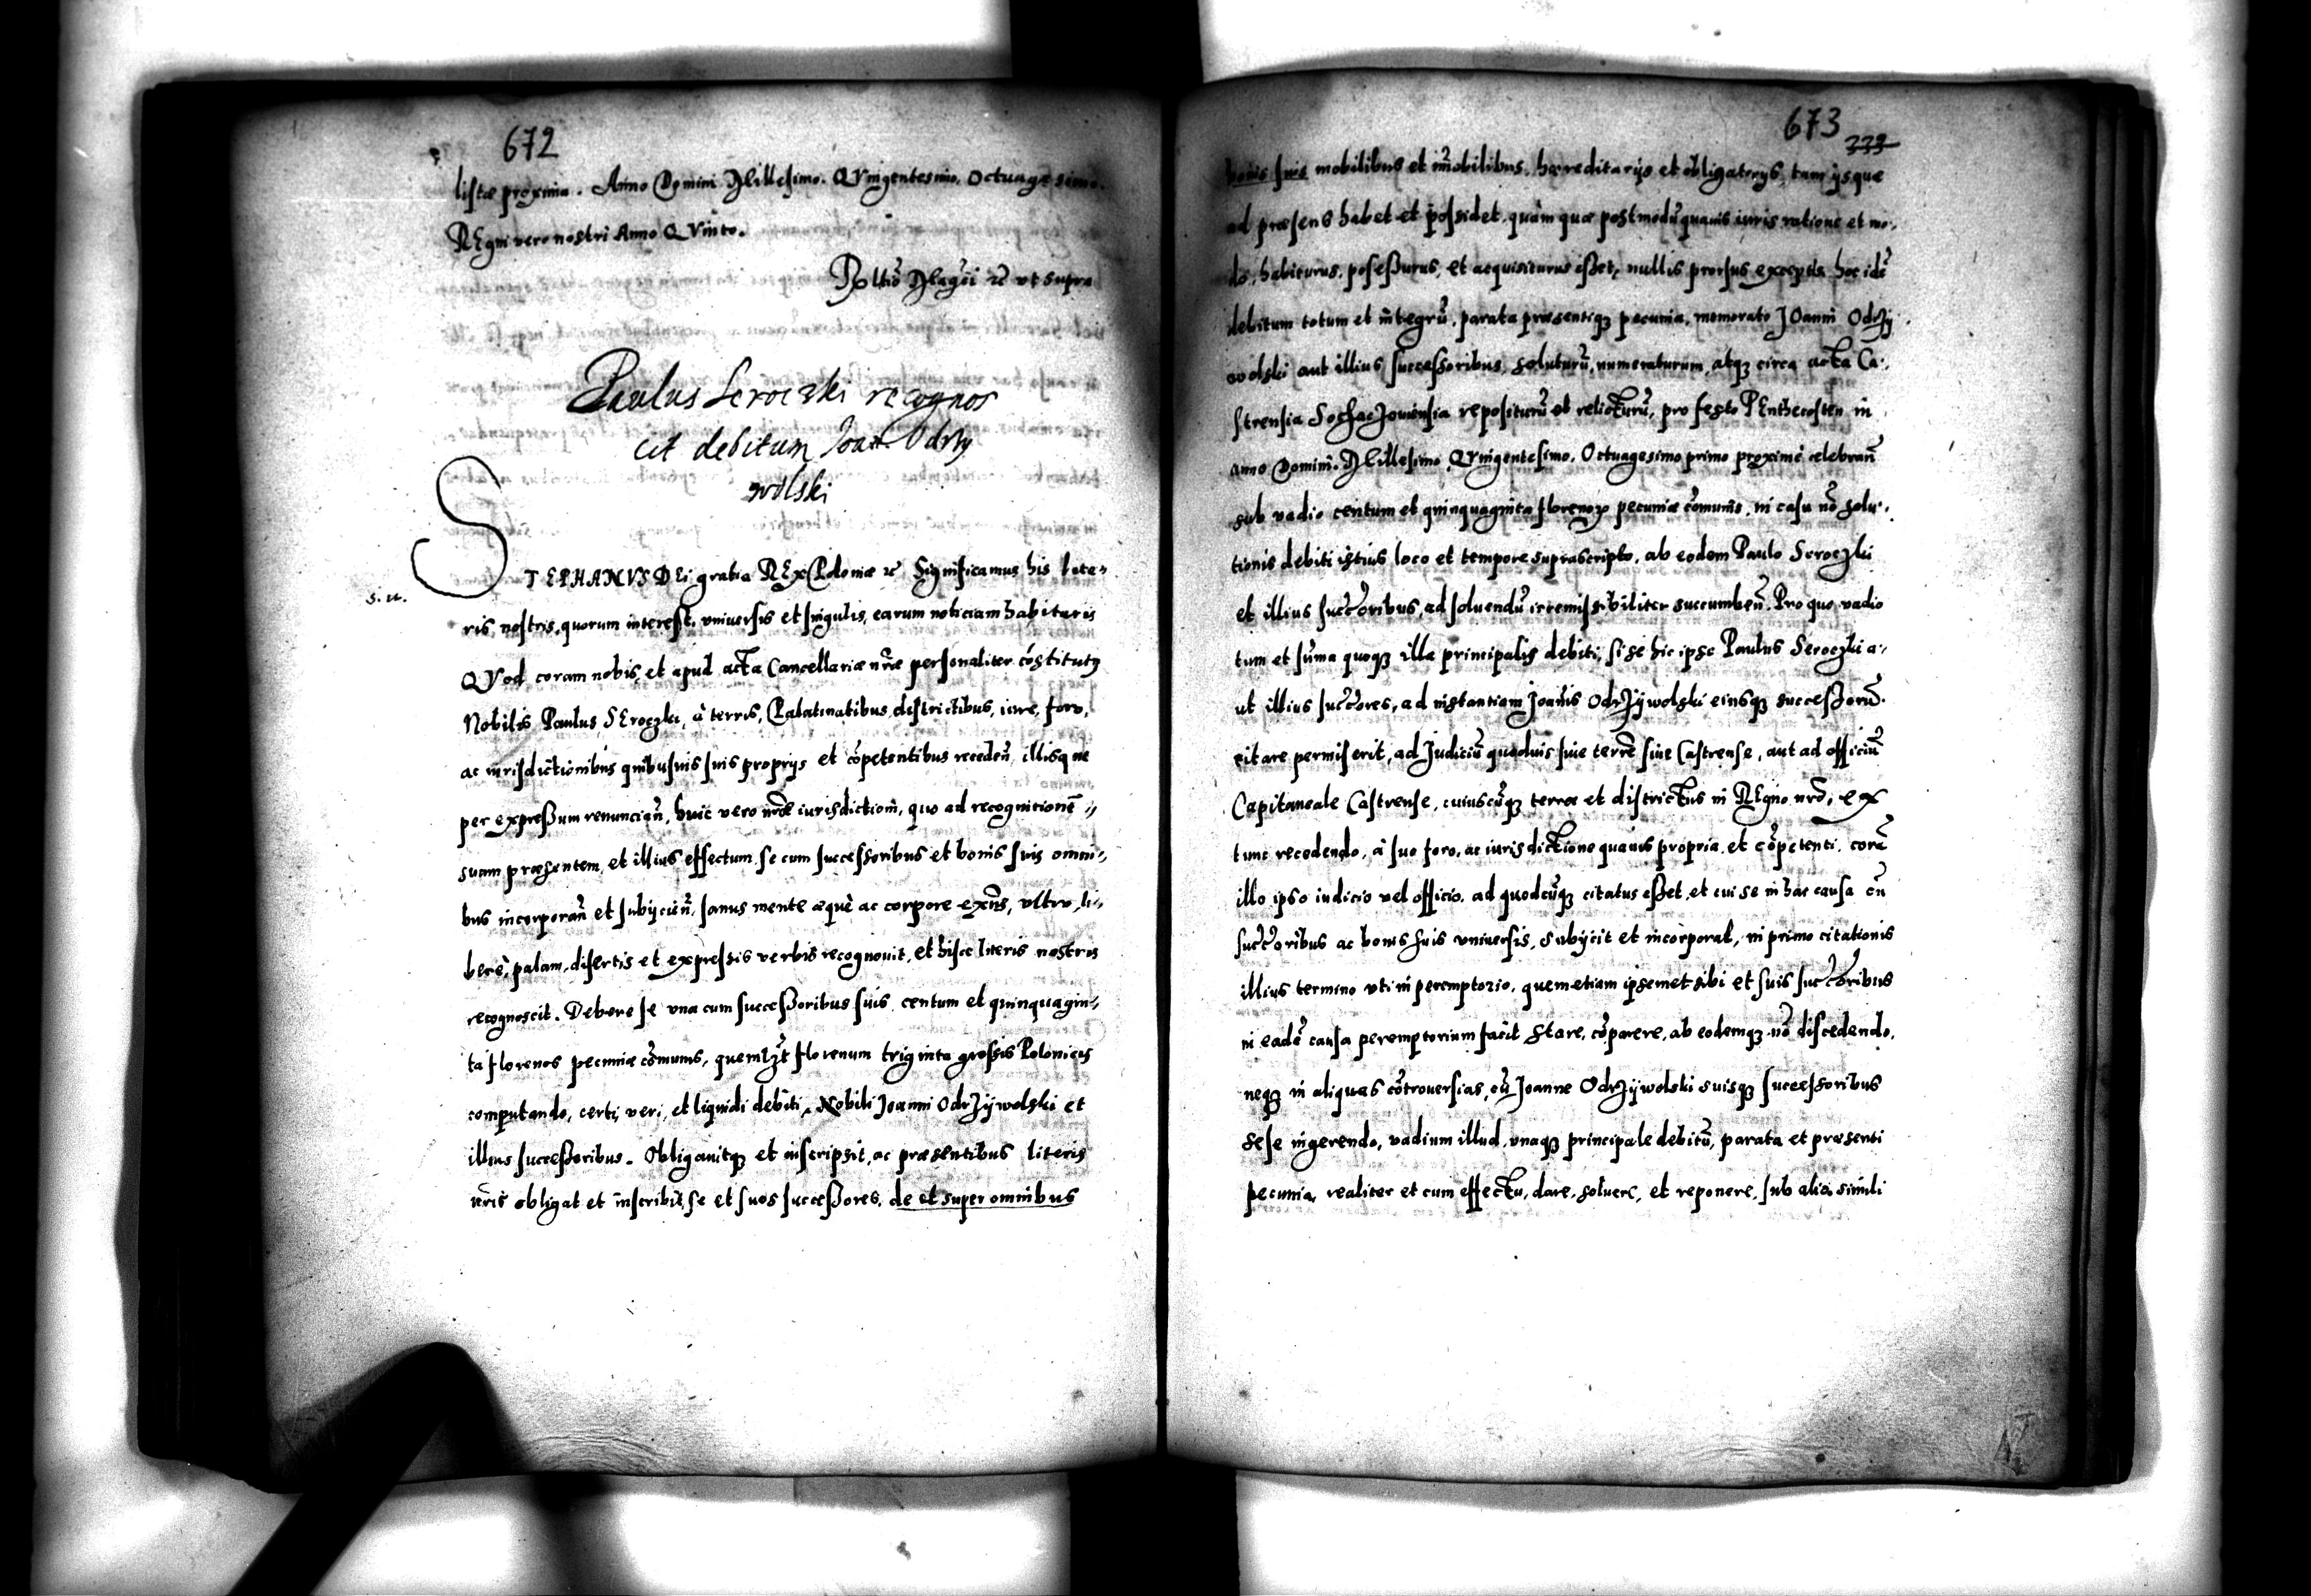 672
listæ proxima. Anno Domini Millesimo. QVingentesimo. Octuagesimo.
REgni vero nostri Anno QVinto.
Rltio Magci rc vt supra
Paulus Seroczki recognos
cit debitum Joan. Odrzy
wolski
S. u.
STEPHANVS DEi gratia REx Poloniæ rc Significamus his lite-
ris nostris, quorum interest, vniuersis et singulis, earum noticiam habituris
QVod coram nobis, et apud acta Cancellariæ nræ personaliter cõstitutus
Nobilis Paulus SEroczki, à terris, Palatinatibus, districtibus, iure, foro,
ac iurisdictionibus quibusuis suis proprys et cõpetentibus receden, illisque
per expreßum renuncian, huic vero nræ iurisdictioni, quo ad recognitionẽ
suam præsentem, et illius effectum, se cum successoribus et bonis suis omni-
bus incorporan et subycien, sanus mente æquè ac corpore exns, vltro, li-
berè, palam, disertis et expressis verbis recognouit, et hisce literis nostris
recognoscit. Debere se vna cum succeßoribus suis centum et quinquagin-
ta florenos pecuniæ cõmunis, quemlzt florenum triginta grossis Polonicis
computando, certi, veri, et liquidi debiti, Nobili Joanni Odrzywolski et
illius succeßoribus. Obligauitqz et inscripsit, ac præsentibus literis
nris obligat et inscribit, se et suos succeßores, de et super omnibus
673
333
bonis suis mobilibus et im̃obilibus, hæreditarys et obligatorys, tam ysque
ad præsens habet et possidet, quàm quæ postmodũ quauis iuris ratione et mo-
do, habiturus, poseßurus, et acquisiturus eßet, nullis prorsus exceptis, hoc idẽ
debitum totum et integrũ, parata præsentiqz pecunia, memorato JOanni Odrzy
wolski aut illius succeßoribus, soluturũ, numeraturum, atqz circa acta Ca-
strensia Sochaczouiensia repositurũ et relicturũ, pro festo PEnthecosten in
anno Domini. Millesimo QVingentesimo. Octuagesimo primo proximè celebran
sub vadio centum et quinquaginta florenoꝝ pecuniæ cõmunis, in casu nõ solu-
tionis debiti istius loco et tempore suprascripto, ab eodem Paulo Seroczki
et illius succoribus, ad soluendũ irremissibiliter succumben. Pro quo vadio
tum et sũma quoqz illa principalis debiti, si se hic ipse Paulus Seroczki a-
ut illius succores, ad instantiam Joannis Odrzywolski eiusqz succeßorũ.
citare permiserit, ad Judiciũ quoduis siue terre siue Castrense, aut ad officiũ
Capitaneale Castrense, cuiuscũqz terræ et districtus in REgno nrõ, ex
tunc recedendo, à suo foro, ac iurisdictione quauis propria, et cõpetenti, corã
illo ipso iudicio vel officio, ad quodcũqz citatus eßet, et cui se in hac causa cũ
succoribus ac bonis suis vniuersis, subycit et incorporat, in primo citationis
illius termino vti in peremptorio, quem etiam ipsemet sibi et suis succoribus
in eadẽ causa peremptorium facit stare, cõparere, ab eodemqz nõ discedendo,
neqz in aliquas cõtrouersias, cũ Joanne Odrzywolski suisqz successoribus
sese ingerendo, vadium illud, vnaqz principale debitũ, parata et præsenti
pecunia, realiter et cum effectu, dare, soluere, et reponere, sub alio simili